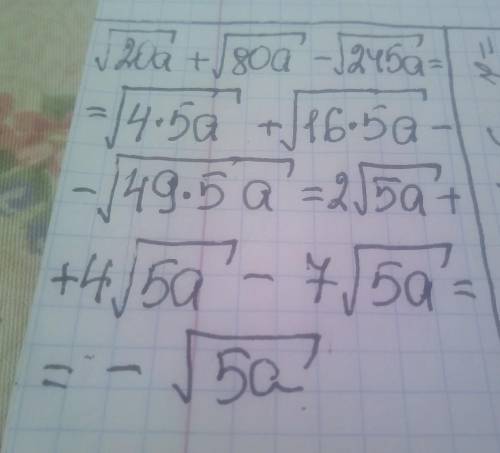 √20a + √80a - √245a =
= √4·5a + √16·5a -
- √49·5a = 2√5a +
+ 4√5a - 7√5a =
= - √5a